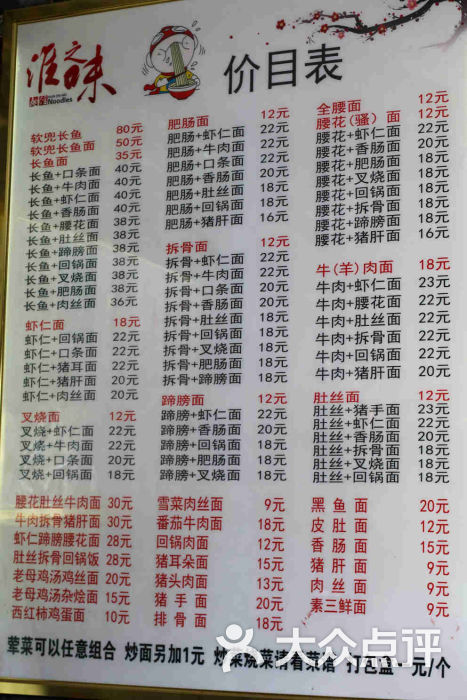 淮之味
Noodles
价目表
软兜长鱼 80元
软兜长鱼面 50元
长鱼面 35元
长鱼+口条面 40元
长鱼+牛肉面 40元
长鱼+虾仁面 40元
长鱼+香肠面 40元
长鱼+腰花面 38元
长鱼+肚丝面 38元
长鱼+蹄膀面 38元
长鱼+回锅面 38元
长鱼+叉烧面 38元
长鱼+肥肠面 38元
长鱼+肉丝面 36元
虾仁面 18元
虾仁+回锅面 22元
虾仁+口条面 22元
虾仁+猪耳面 22元
虾仁+猪肝面 20元
虾仁+肉丝面 20元
叉烧面 12元
叉烧+虾仁面 22元
叉烧+牛肉面 22元
叉烧+口条面 20元
叉烧+回锅面 22元
肥肠面 12元
肥肠+虾仁面 22元
肥肠+牛肉面 22元
肥肠+口条面 22元
肥肠+香肠面 20元
肥肠+肚丝面 18元
肥肠+回锅面 18元
肥肠+猪肝面 16元
拆骨面 12元
拆骨+虾仁面 22元
拆骨+牛肉面 22元
拆骨+口条面 20元
拆骨+香肠面 20元
拆骨+肚丝面 18元
拆骨+回锅面 18元
拆骨+叉烧面 18元
拆骨+蹄膀面 18元
蹄膀面 12元
蹄膀+虾仁面 22元
蹄膀+牛肉面 22元
蹄膀+回锅面 18元
蹄膀+肥肠面 18元
蹄膀+叉烧面 18元
全腰面 12元
腰花(骚)面 12元
腰花+虾仁面 22元
腰花+香肠面 20元
腰花+肥肠面 18元
腰花+叉烧面 18元
腰花+回锅面 18元
腰花+拆骨面 18元
腰花+蹄膀面 18元
腰花+猪肝面 16元
牛(羊)肉面 18元
牛肉+虾仁面 23元
牛肉+腰花面 22元
牛肉+香肠面 22元
牛肉+肚丝面 22元
牛肉+回锅面 22元
牛肉+猪肝面 20元
肚丝面 12元
肚丝+猪手面 23元
肚丝+虾仁面 22元
肚丝+香肠面 20元
肚丝+拆骨面 18元
肚丝+叉烧面 18元
肚丝+回锅面 18元
腰花肚丝牛肉面 30元
牛肉拆骨猪肝面 30元
虾仁蹄膀腰花面 28元
肚丝拆骨回锅饭 28元
老母鸡汤鸡丝面 20元
老母鸡汤杂烩面 15元
西红柿鸡蛋面 10元
雪菜肉丝面 9元
番茄牛肉面 18元
回锅肉面 12元
猪耳朵面 15元
猪头肉面 13元
猪手面 20元
排骨面 18元
黑鱼面 20元
皮肚面 12元
香肠面 15元
猪肝面 9元
肉丝面 9元
素三鲜面 9元
荤菜可以任意组合 炒面另加1元 炒菜烧菜请看菜谱 打包盒一元/个
大众点评